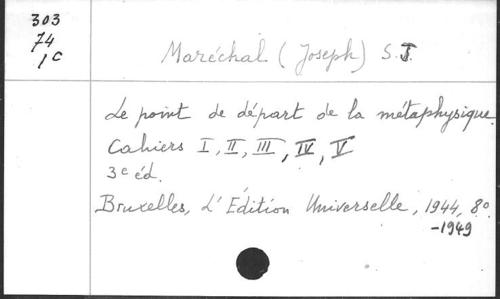 303
74
1c
Maréchal (Joseph) S.J.
Le point de départ de la métaphysique.
Cahiers I, II, III, IV, V
3e éd.
Bruxelles, L'Edition Universelle, 1944, 8o.
-1949